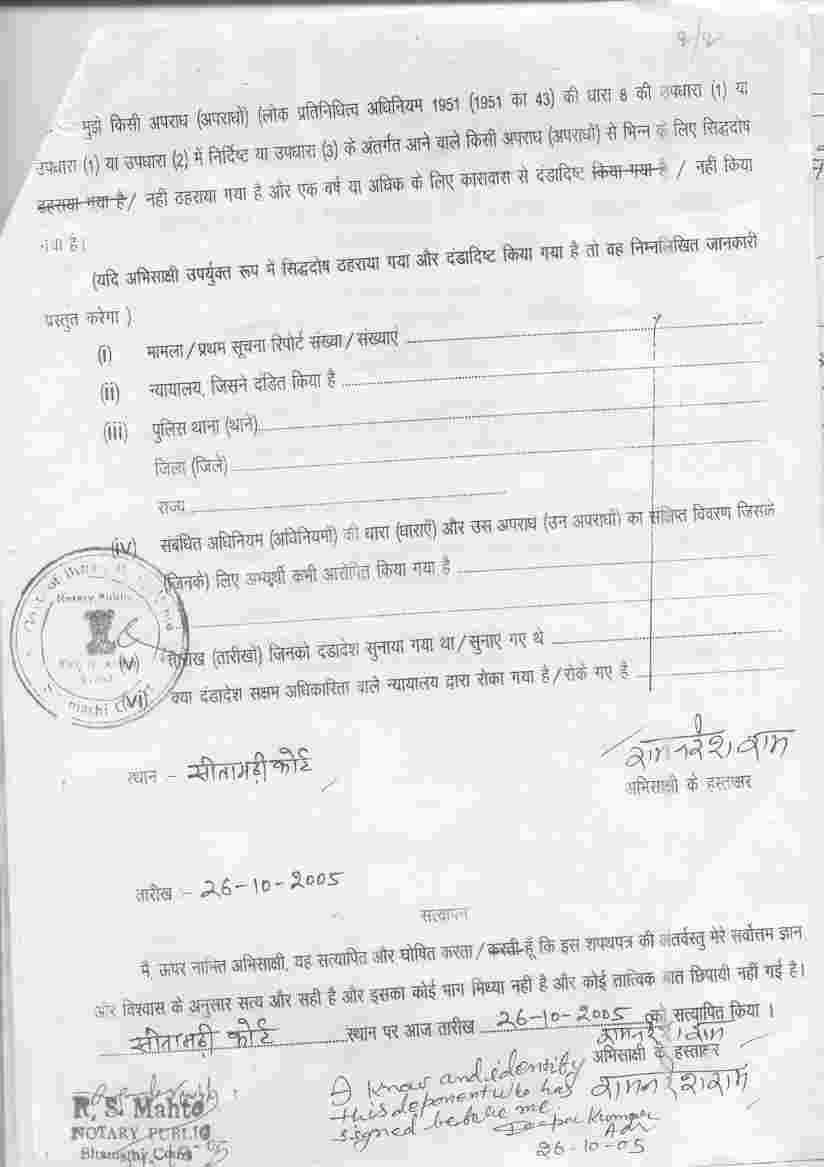 मुझे किसी अपराध (अपराधों) (लोक प्रतिनिधित्व अधिनियम 1951 (1951 का 43) की धारा 8 की उपधारा (1) या
उपधारा (1) या उपधारा (2) में निर्दिष्ट या उपधारा (3) के अंतर्गत आने वाले किसी अपराध (अपराधों) से भिन्न के लिए सिद्धदोष
ठहराया गया है / नहीं ठहराया गया है और एक वर्ष या अधिक के लिए कारावास से दंडादिष्ट किया गया है / नहीं किया
गया है।
(यदि अभिसाक्षी उपर्युक्त रूप में सिद्धदोष ठहराया गया और दंडादिष्ट किया गया है तो वह निम्नलिखित जानकारी
प्रस्तुत करेगा )
(i) मामला / प्रथम सूचना रिपोर्ट संख्या / संख्याएं
(ii) न्यायालय, जिसने दंडित किया है
(iii) पुलिस थाना (थाने)
जिला (जिले)
राज्य
(iv) संबंधित अधिनियम (अधिनियमों) की धारा (धाराएँ) और उस अपराध (उन अपराधों) का संक्षिप्त विवरण जिसके
(जिनके) लिए अभ्यर्थी कभी आरोपित किया गया है
Notary Public
(v) तारीख (तारीखों) जिनको दंडादेश सुनाया गया था / सुनाए गए थे
(vi) क्या दंडादेश सक्षम अधिकारिता वाले न्यायालय द्वारा रोका गया है / रोके गए है
स्थान :- सीतामढ़ी कोर्ट
रामनरेश राम
अभिसाक्षी के हस्ताक्षर
तारीख :- 26-10-2005
सत्यापन
मै, ऊपर नामित अभिसाक्षी, यह सत्यापित और घोषित करता / करती हूँ कि इस शपथपत्र की अंतर्वस्तु मेरे सर्वोत्तम ज्ञान
और विश्वास के अनुसार सत्य और सही है और इसका कोई भाग मिथ्या नही है और कोई तात्विक बात छिपायी नहीं गई है।
सीतामढ़ी कोर्ट स्थान पर आज तारीख 26-10-2005 को सत्यापित किया ।
रामनरेश राम
अभिसाक्षी के हस्ताक्षर
I know and identity
this deponent who has
signed before me
रामनरेश राम
26-10-05
R. S. Mahto
NOTARY PUBLIC